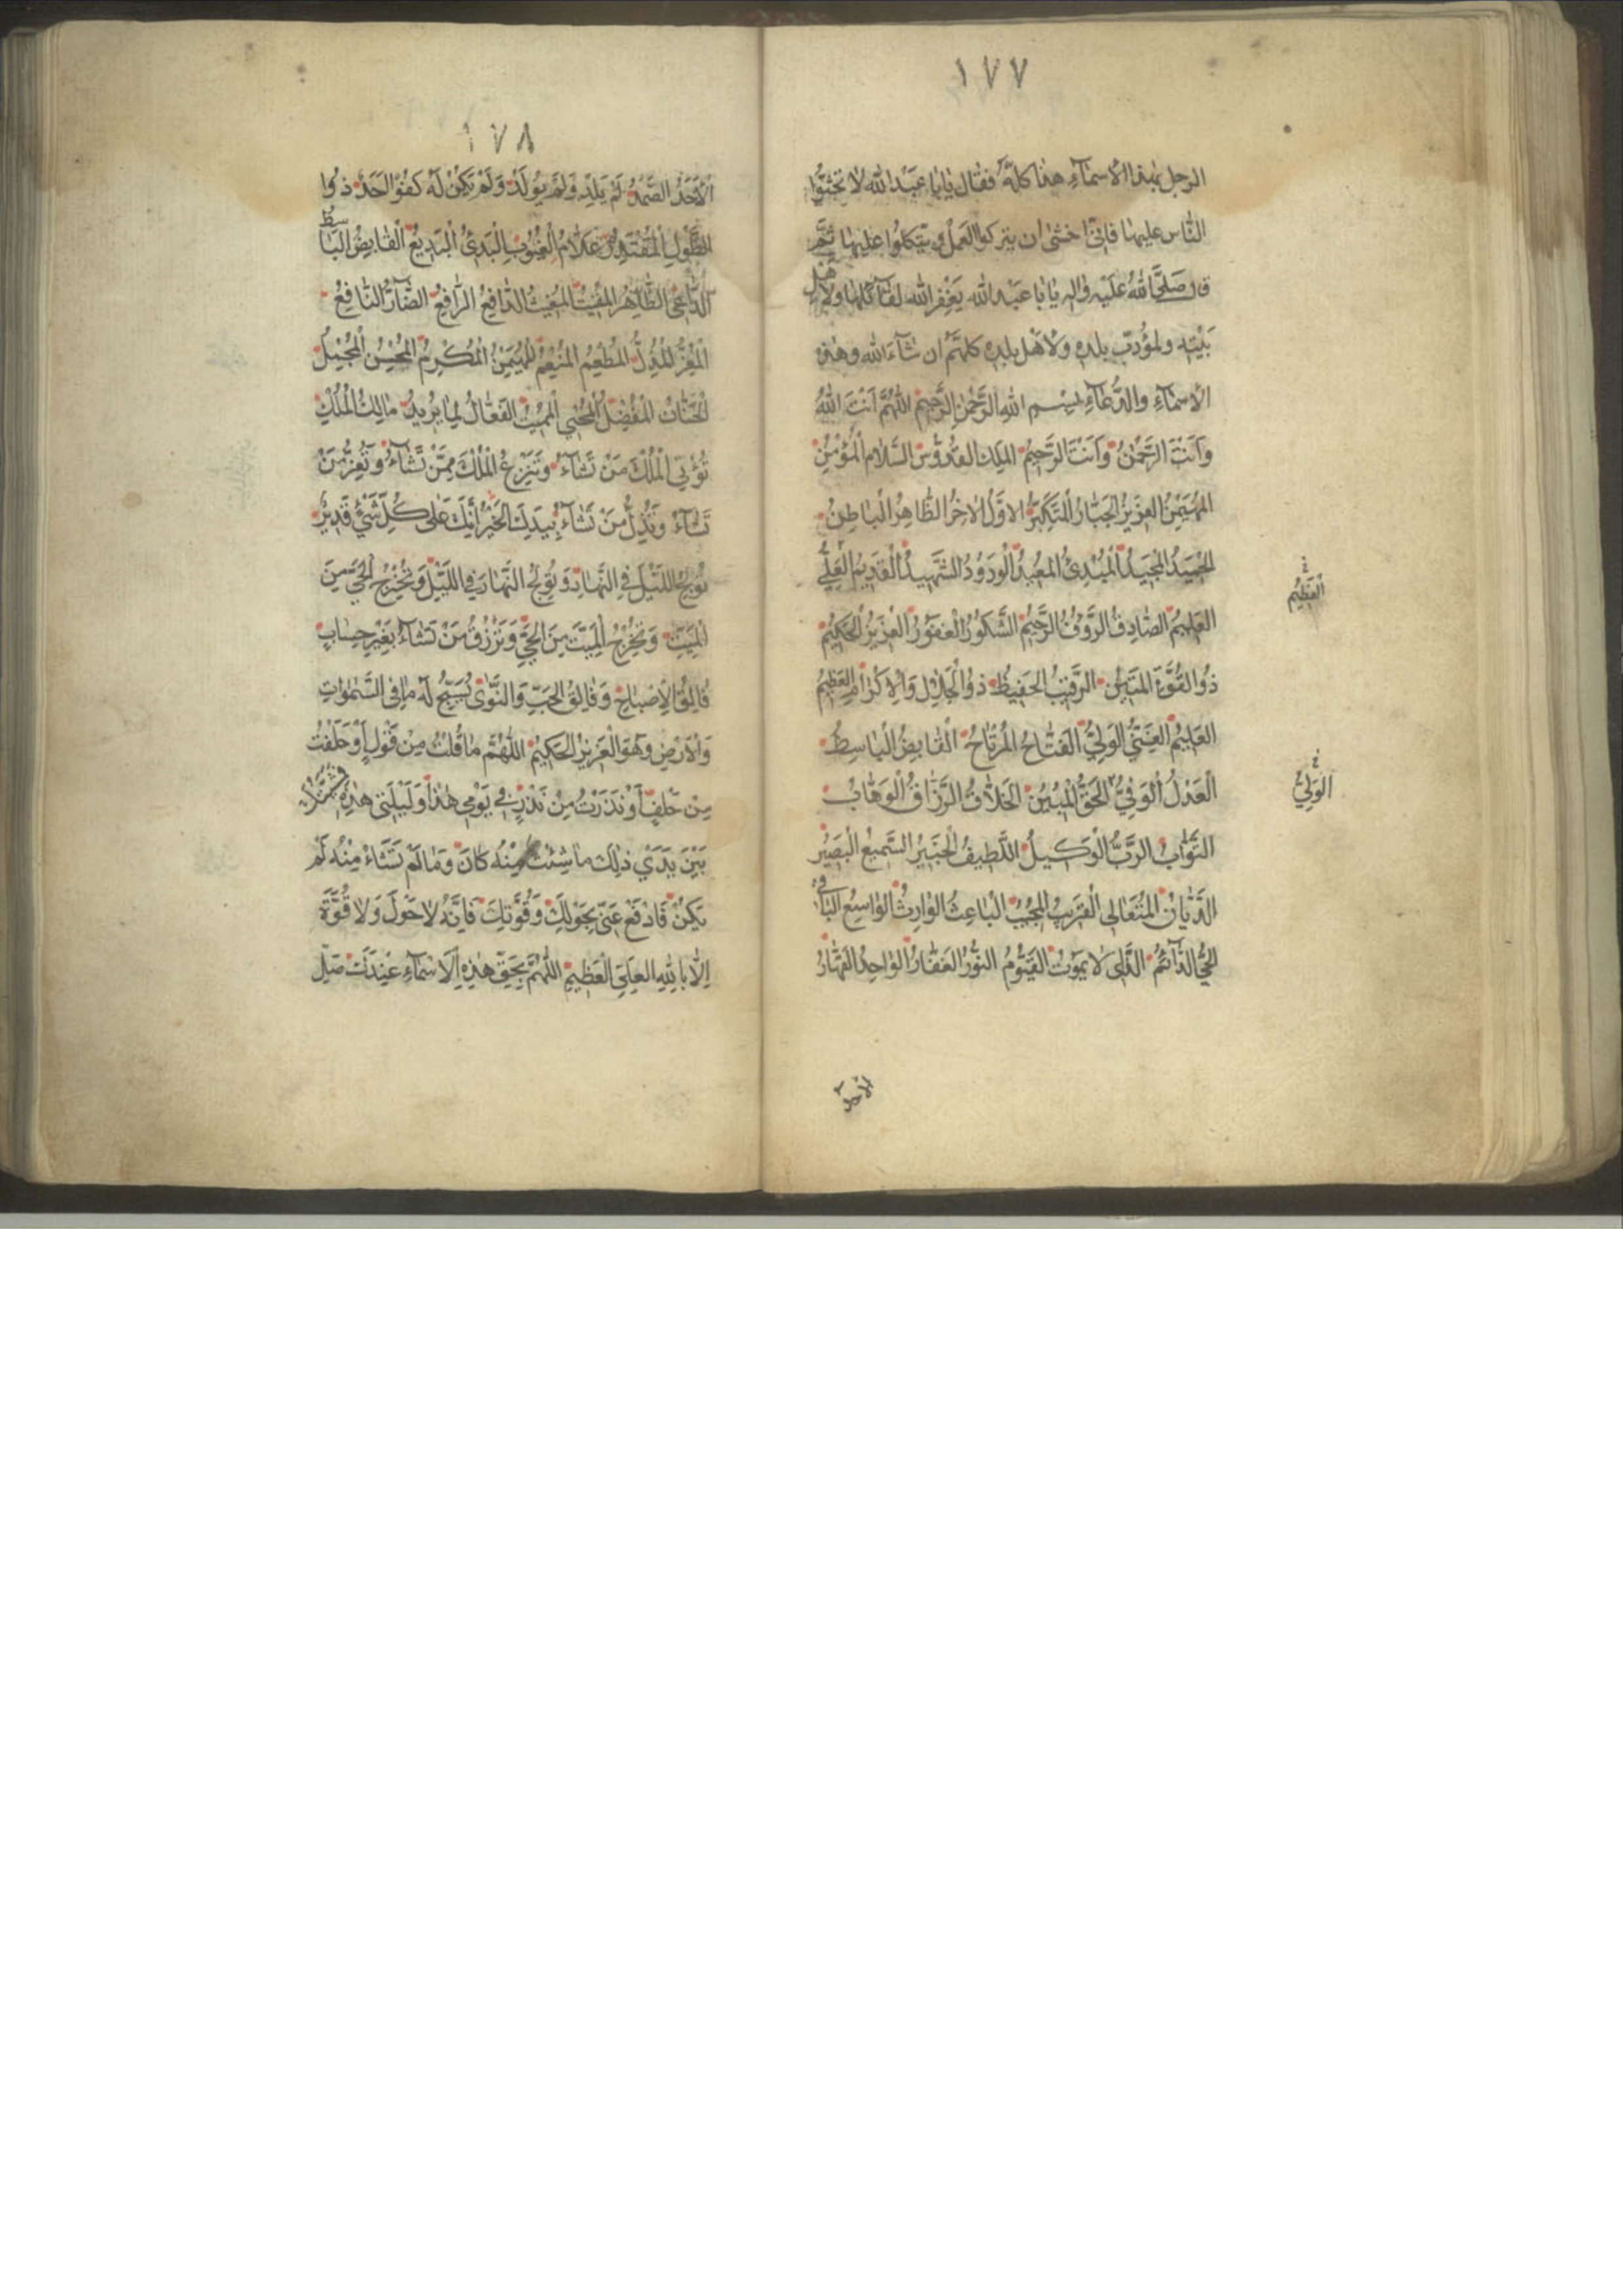 ١٧٧
الرجل بهذا الاسمآء هذا كله فقال يا ابا عبد الله لا تحثوا
الناس عليها فانى اخشى ان يتركوا العمل و يتكلوا عليها ثم
قال صلى الله عليه واله يا ابا عبد الله يغفر الله لقائلها ولاهل
بيته ولمؤدب بلده ولاهل بلده كلهم ان شآء الله وهذه
الاسمآء والدعآء بسم الله الرحمن الرحيم اللهم انت الله
وَاَنتَ الرَّحْمٰنُ وَاَنتَ الرَّحيمُ الملِك القدّوس السّلام المؤمِن
المهَيمِنُ العَزيزُ الجَبّارُ المتكبّرُ الاوّلُ الاٰخِرُ الظّاهِرُ الباطِنُ
الحَميدُ المجَيدُ المُبْدِئُ المعُيدُ الوَدُودُ الشّهيدُ القديمُ العَلِيُّ
العَظيمُ
العَليمُ الصّادِقُ الرّؤفُ الرّحيمُ الشّكورُ الغفورُ العزيزُ الحكيمُ
ذوُ القوّةِ المتينُ الرّقيبُ الحَفيظُ ذوُ الجَلالِ وَالاِكرامِ العَظيمُ
العَليمُ الغَنِيُّ الوَلِيُّ الفَتّاحُ المُرتاحُ القابِضُ الباسِطُ
العَدْلُ الوَفِيُّ الحَقُّ المُبينُ الخَلاّقُ الرّزّاقُ الوَهّابُ
الوَلِيُّ
التَّوّابُ الرَّبُّ الوَكيلُ اللَّطيفُ الخَبيرُ السَّميعُ البَصيرُ
الدَّيّانُ المُتَعالى القَريبُ المُجيبُ الباعِثُ الوارِثُ الواسِعُ الباقى
الحَيُّ الدّآئمُ الّذى لا يموتُ القَيّومُ النّورُ الغَفّارُ الواحِدُ القَهّارُ
الاحد
١٧٨
الاَحَدُ الصَّمَدُ لَمْ يَلِدْ وَلَمْ يُولَدْ وَلَمْ يَكُنْ لَهُ كُفُوًا اَحَدٌ ذوُا
الطَّولِ المُقْتَدِرُ عَلاّمُ الغُيُوبِ البَدئُ البَديعُ القابِضُ الباسِطُ
الدّاعى الظّاهِرُ المُقيتُ المُغيثُ الدّافِعُ الرّافِعُ الضّآرُّ النّافِعُ
المُعِزُّ المُذِلُّ المُطْعِمُ المُنْعِمُ المُهَيمِنُ المُكْرِمُ المُحْسِنُ المُجْمِلُ
الحَنّانُ المُفْضِلُ المُحْيى المُميتُ الفَعّالُ لِما يُريدُ مالِكُ المُلْكِ
تُؤْتِى المُلْكَ مَنْ تَشآءُ وَتَنْزِعُ المُلْكَ مِمَّنْ تَشآءُ وَتُعِزُّ مَنْ
تَشآءُ وَتُذِلُّ مَنْ تَشآءُ بِيَدِكَ الخَيْرُ اِنَّكَ عَلى كُلِّ شَئٍ قَديرٌ
تُولِجُ اللَّيْلَ فِى النَّهارِ وَتُولِجُ النَّهارَ فى اللَّيْلِ وَتُخْرِجُ الحَيَّ مِنَ
المَيِّتِ وَتُخْرِجُ المَيِّتَ مِنَ الحَيِّ وَتَرْزُقُ مَنْ تَشآءُ بِغَيْرِ حِسابٍ
فالِقُ الاِصْباحِ وَفالِقُ الحَبِّ وَالنَّوٰى يُسَبِّحُ لَهُ ما فِى السَّمٰوٰاتِ
وَالاَرْضِ وَهُوَ العَزيزُ الحَكيمُ اللّهُمَّ ما قُلْتُ مِنْ قَوْلٍ اَوْ حَلَفْتُ
مِنْ حَلْفٍ اَوْ نَذَرْتُ مِنْ نَذْرٍ فى يَوْمى هٰذا وَلَيْلَتى هٰذِهِ
بَيْنَ يَدَيْ ذٰلِكَ ما شِئْتَ مِنْهُ كانَ وَمالَمْ تَشَأْ مِنْهُ لَمْ
يَكُنْ فَادْفَعْ عَنّى بِحَوْلِكَ وَقُوَّتِكَ فَاِنَّهُ لا حَوْلَ وَلا قُوَّةَ
اِلاّ بِاللهِ العَلِيِّ العَظيمِ اللّهُمَّ بِحَقِّ هٰذِهِ الاَسْمآءِ عِنْدَكَ صَلِّ